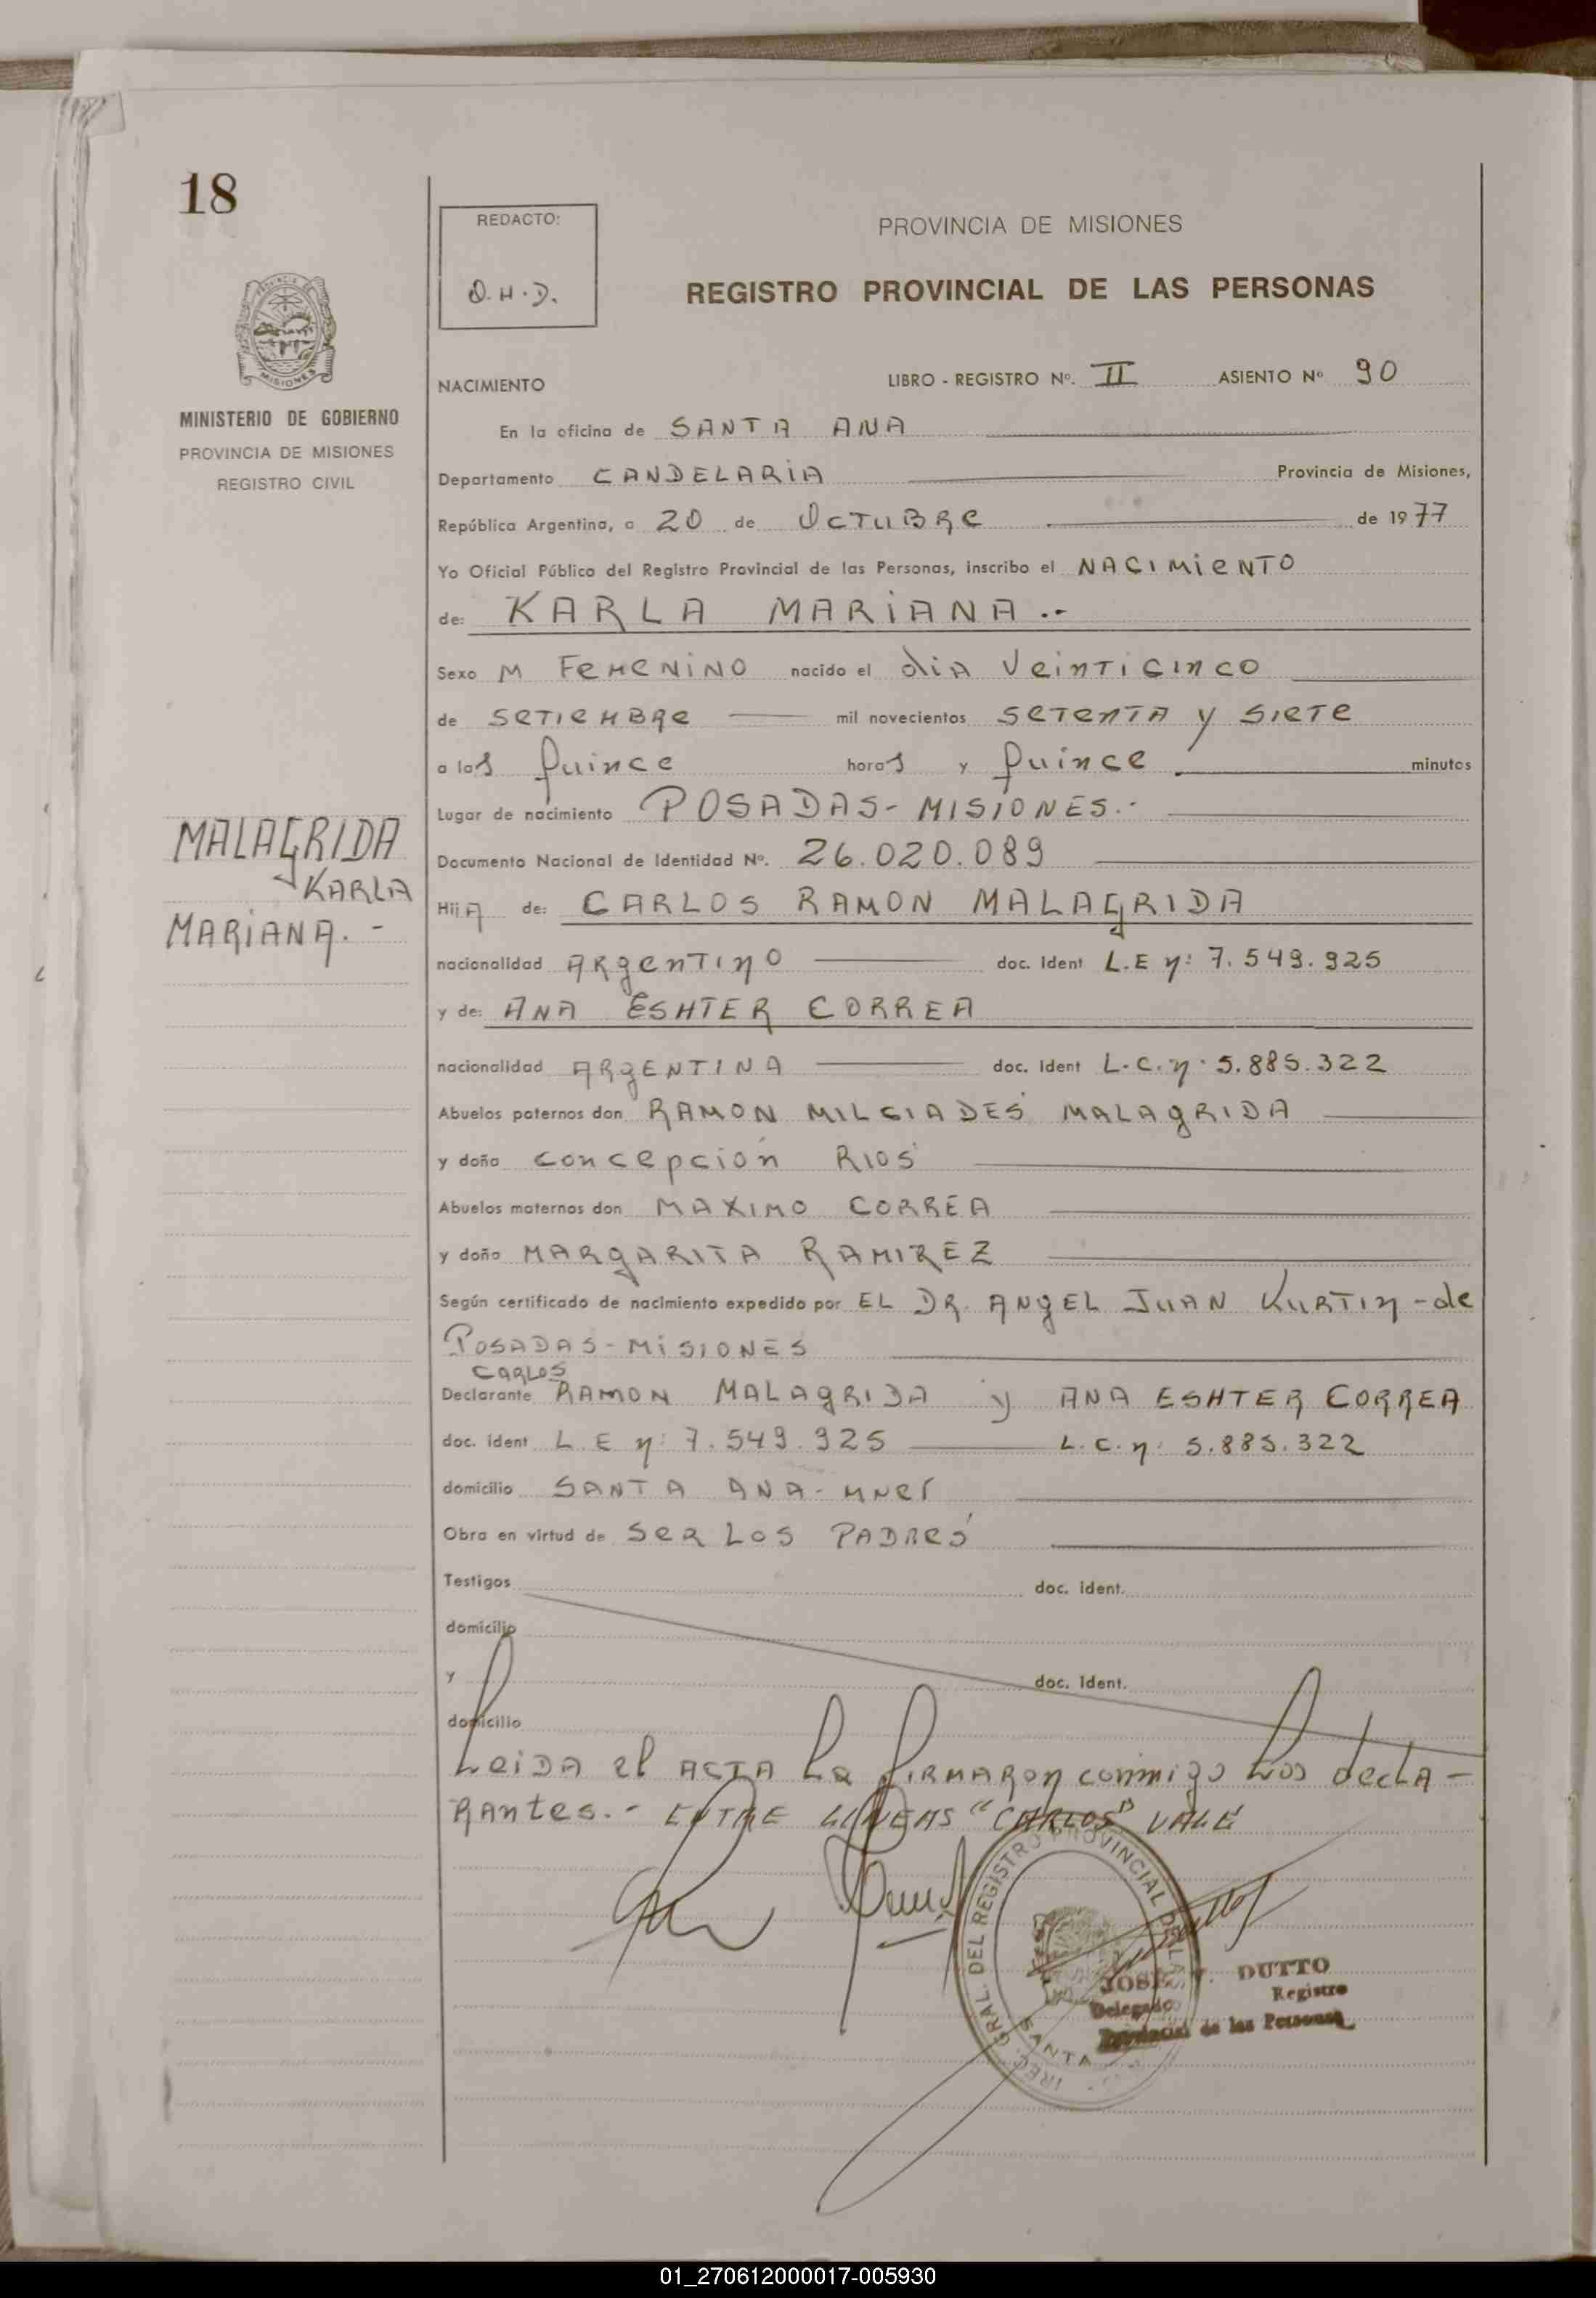 18
REDACTO:
O.H.D.
PROVINCIA DE MISIONES
REGISTRO PROVINCIAL DE LAS PERSONAS
MINISTERIO DE GOBIERNO
PROVINCIA DE MISIONES
REGISTRO CIVIL
NACIMIENTO LIBRO - REGISTRO Nº. II ASIENTO Nº 90
En la oficina de SANTA ANA
Departamento CANDELARIA Provincia de Misiones,
República Argentina, a 20 de OCTUBRE de 1977
Yo Oficial Público del Registro Provincial de las Personas, inscribo el NACIMIENTO
de: KARLA MARIANA.-
Sexo M FEMENINO nacido el dia Veinticinco
de SETIEMBRE mil novecientos SETENTA y SIETE
a las quince horas y quince minutos
Lugar de nacimiento POSADAS- MISIONES.-
Documento Nacional de Identidad Nº. 26.020.089
MALAGRIDA
KARLA
MARIANA.-
HijA de: CARLOS RAMON MALAGRIDA
nacionalidad ARGENTINO doc. Ident L.E n: 7.549.925
y de: ANA ESHTER CORREA
nacionalidad ARGENTINA doc. Ident L.C. n: 5.885.322
Abuelos paternos don RAMON MILCIADES MALAGRIDA
y doña concepción RIOS
Abuelos maternos don MAXIMO CORREA
y doña MARGARITA RAMIREZ
Según certificado de nacimiento expedido por EL DR. ANGEL JUAN KURTIN -de
POSADAS-MISIONES
CARLOS
Declarante RAMON MALAGRIDA y ANA ESHTER CORREA
doc. ident L.E n: 7.549.925 L.C. n: 5.885.322
domicilio SANTA ANA- MNES
Obra en virtud de SER LOS PADRES
Testigos doc. ident.
domicilio
y doc. Ident.
domicilio
Leida el ACTA la firmaron conmigo los decla-
rantes.- ENTRE LINEAS "CARLOS" VALE
DIREC. GRAL. DEL REGISTRO PROVINCIAL DE LAS
SANTA
JOSE V. DUTTO
Delegado Registro
Provincial de las Personas
01_270612000017-005930